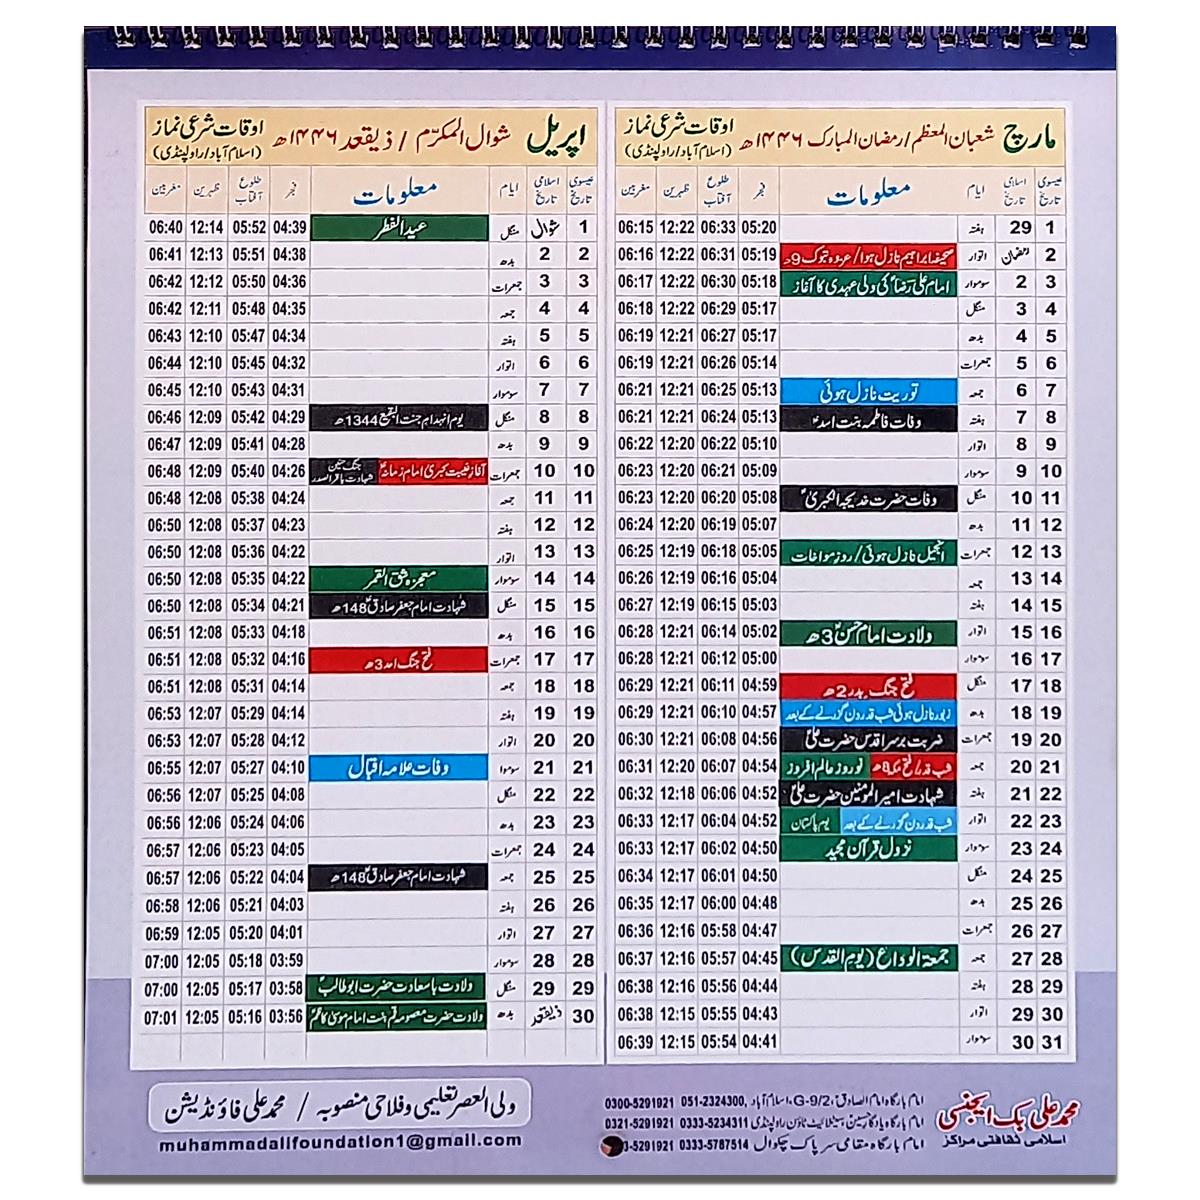 مارچ شعبان المعظم/رمضان المبارک ۱۴۴۶ھ اوقات شرعی نماز (اسلام آباد/راولپنڈی)
عیسوی تاریخ اسلامی تاریخ ایام معلومات فجر طلوع آفتاب ظہرین مغربین
1 29 ہفتہ 05:20 06:33 12:22 06:15
2 رمضان اتوار صحیفہ ابراہیم نازل ہوا/غزوہ تبوک 9ھ 05:19 06:31 12:22 06:16
3 2 سوموار امام علی رضاؑ کی ولی عہدی کا آغاز 05:18 06:30 12:22 06:17
4 3 منگل 05:17 06:29 12:22 06:18
5 4 بدھ 05:17 06:27 12:21 06:19
6 5 جمعرات 05:14 06:26 12:21 06:19
7 6 جمعہ توریت نازل ہوئی 05:13 06:25 12:21 06:21
8 7 ہفتہ وفات فاطمہ بنت اسدؑ 05:13 06:24 12:21 06:21
9 8 اتوار 05:10 06:22 12:20 06:22
10 9 سوموار 05:09 06:21 12:20 06:23
11 10 منگل وفات حضرت خدیجۃ الکبریٰؑ 05:08 06:20 12:20 06:23
12 11 بدھ 05:07 06:19 12:20 06:24
13 12 جمعرات انجیل نازل ہوئی/روز مواخات 05:05 06:18 12:19 06:25
14 13 جمعہ 05:04 06:16 12:19 06:26
15 14 ہفتہ 05:03 06:15 12:19 06:27
16 15 اتوار ولادت امام حسنؑ 3ھ 05:02 06:14 12:21 06:28
17 16 سوموار 05:00 06:12 12:21 06:28
18 17 منگل فتح جنگ بدر 2ھ 04:59 06:11 12:21 06:29
19 18 بدھ زبور نازل ہوئی شب قدر دن گزرنے کے بعد 04:57 06:10 12:21 06:29
20 19 جمعرات ضربت بر سر اقدس حضرت علیؑ 04:56 06:08 12:21 06:30
21 20 جمعہ شب قدر/فتح مکہ 8ھ نوروز عالم افروز 04:54 06:07 12:20 06:31
22 21 ہفتہ شہادت امیر المومنین حضرت علیؑ 04:52 06:06 12:18 06:32
23 22 اتوار شب قدر دن گزرنے کے بعد یوم پاکستان 04:52 06:04 12:17 06:33
24 23 سوموار نزول قرآن مجید 04:50 06:02 12:17 06:33
25 24 منگل 04:50 06:01 12:17 06:34
26 25 بدھ 04:48 06:00 12:17 06:35
27 26 جمعرات 04:47 05:58 12:16 06:36
28 27 جمعہ جمعۃ الوداع (یوم القدس) 04:45 05:57 12:16 06:37
29 28 ہفتہ 04:44 05:56 12:16 06:38
30 29 اتوار 04:43 05:55 12:15 06:38
31 30 سوموار 04:41 05:54 12:15 06:39
اپریل شوال المکرّم / ذیقعد ۱۴۴۶ھ اوقات شرعی نماز (اسلام آباد/راولپنڈی)
عیسوی تاریخ اسلامی تاریخ ایام معلومات فجر طلوع آفتاب ظہرین مغربین
1 شوال منگل عید الفطر 04:39 05:52 12:14 06:40
2 2 بدھ 04:38 05:51 12:13 06:41
3 3 جمعرات 04:36 05:50 12:12 06:42
4 4 جمعہ 04:35 05:48 12:11 06:42
5 5 ہفتہ 04:34 05:47 12:10 06:43
6 6 اتوار 04:32 05:45 12:10 06:44
7 7 سوموار 04:31 05:43 12:10 06:45
8 8 منگل یوم انہدام جنت البقیع 1344ھ 04:29 05:42 12:09 06:46
9 9 بدھ 04:28 05:41 12:09 06:47
10 10 جمعرات آغاز غیبت کبریٰ امام زمانہؑ جنگ حنین شہادت باقر الصدر 04:26 05:40 12:09 06:48
11 11 جمعہ 04:24 05:38 12:08 06:48
12 12 ہفتہ 04:23 05:37 12:08 06:50
13 13 اتوار 04:22 05:36 12:08 06:50
14 14 سوموار معجزہ شق القمر 04:22 05:35 12:08 06:50
15 15 منگل شہادت امام جعفر صادقؑ 148ھ 04:21 05:34 12:08 06:50
16 16 بدھ 04:18 05:33 12:08 06:51
17 17 جمعرات فتح جنگ احد 3ھ 04:16 05:32 12:08 06:51
18 18 جمعہ 04:14 05:31 12:08 06:51
19 19 ہفتہ 04:14 05:29 12:07 06:53
20 20 اتوار 04:12 05:28 12:07 06:53
21 21 سوموا وفات علامہ اقبال 04:10 05:27 12:07 06:55
22 22 منگل 04:08 05:25 12:07 06:56
23 23 بدھ 04:06 05:24 12:06 06:56
24 24 جمعرات 04:05 05:23 12:06 06:57
25 25 جمعہ شہادت امام جعفر صادقؑ 148ھ 04:04 05:22 12:06 06:57
26 26 ہفتہ 04:03 05:21 12:06 06:58
27 27 اتوار 04:01 05:20 12:05 06:59
28 28 سوموار 03:59 05:18 12:05 07:00
29 29 منگل ولادت باسعادت حضرت ابوطالبؑ 03:58 05:17 12:05 07:00
30 ذیقعد بدھ ولادت حضرت معصومہ قم بنت امام موسیٰ کاظمؑ 03:56 05:16 12:05 07:01
محمد علی بک ایجنسی
اسلامی ثقافتی مراکز
امام بارگاہ امام الصادقؑ، G-9/2، اسلام آباد 051-2324300, 0300-5291921
امام بارگاہ یادگار حسینؑ، سیٹلائیٹ ٹاؤن راولپنڈی 0333-5234311 0321-5291921
امام بارگاہ مقامی سرپاک چکوال 0333-5787514 3-5291921
ولی العصر تعلیمی و فلاحی منصوبہ / محمد علی فاؤنڈیشن
muhammadalifoundation1@gmail.com